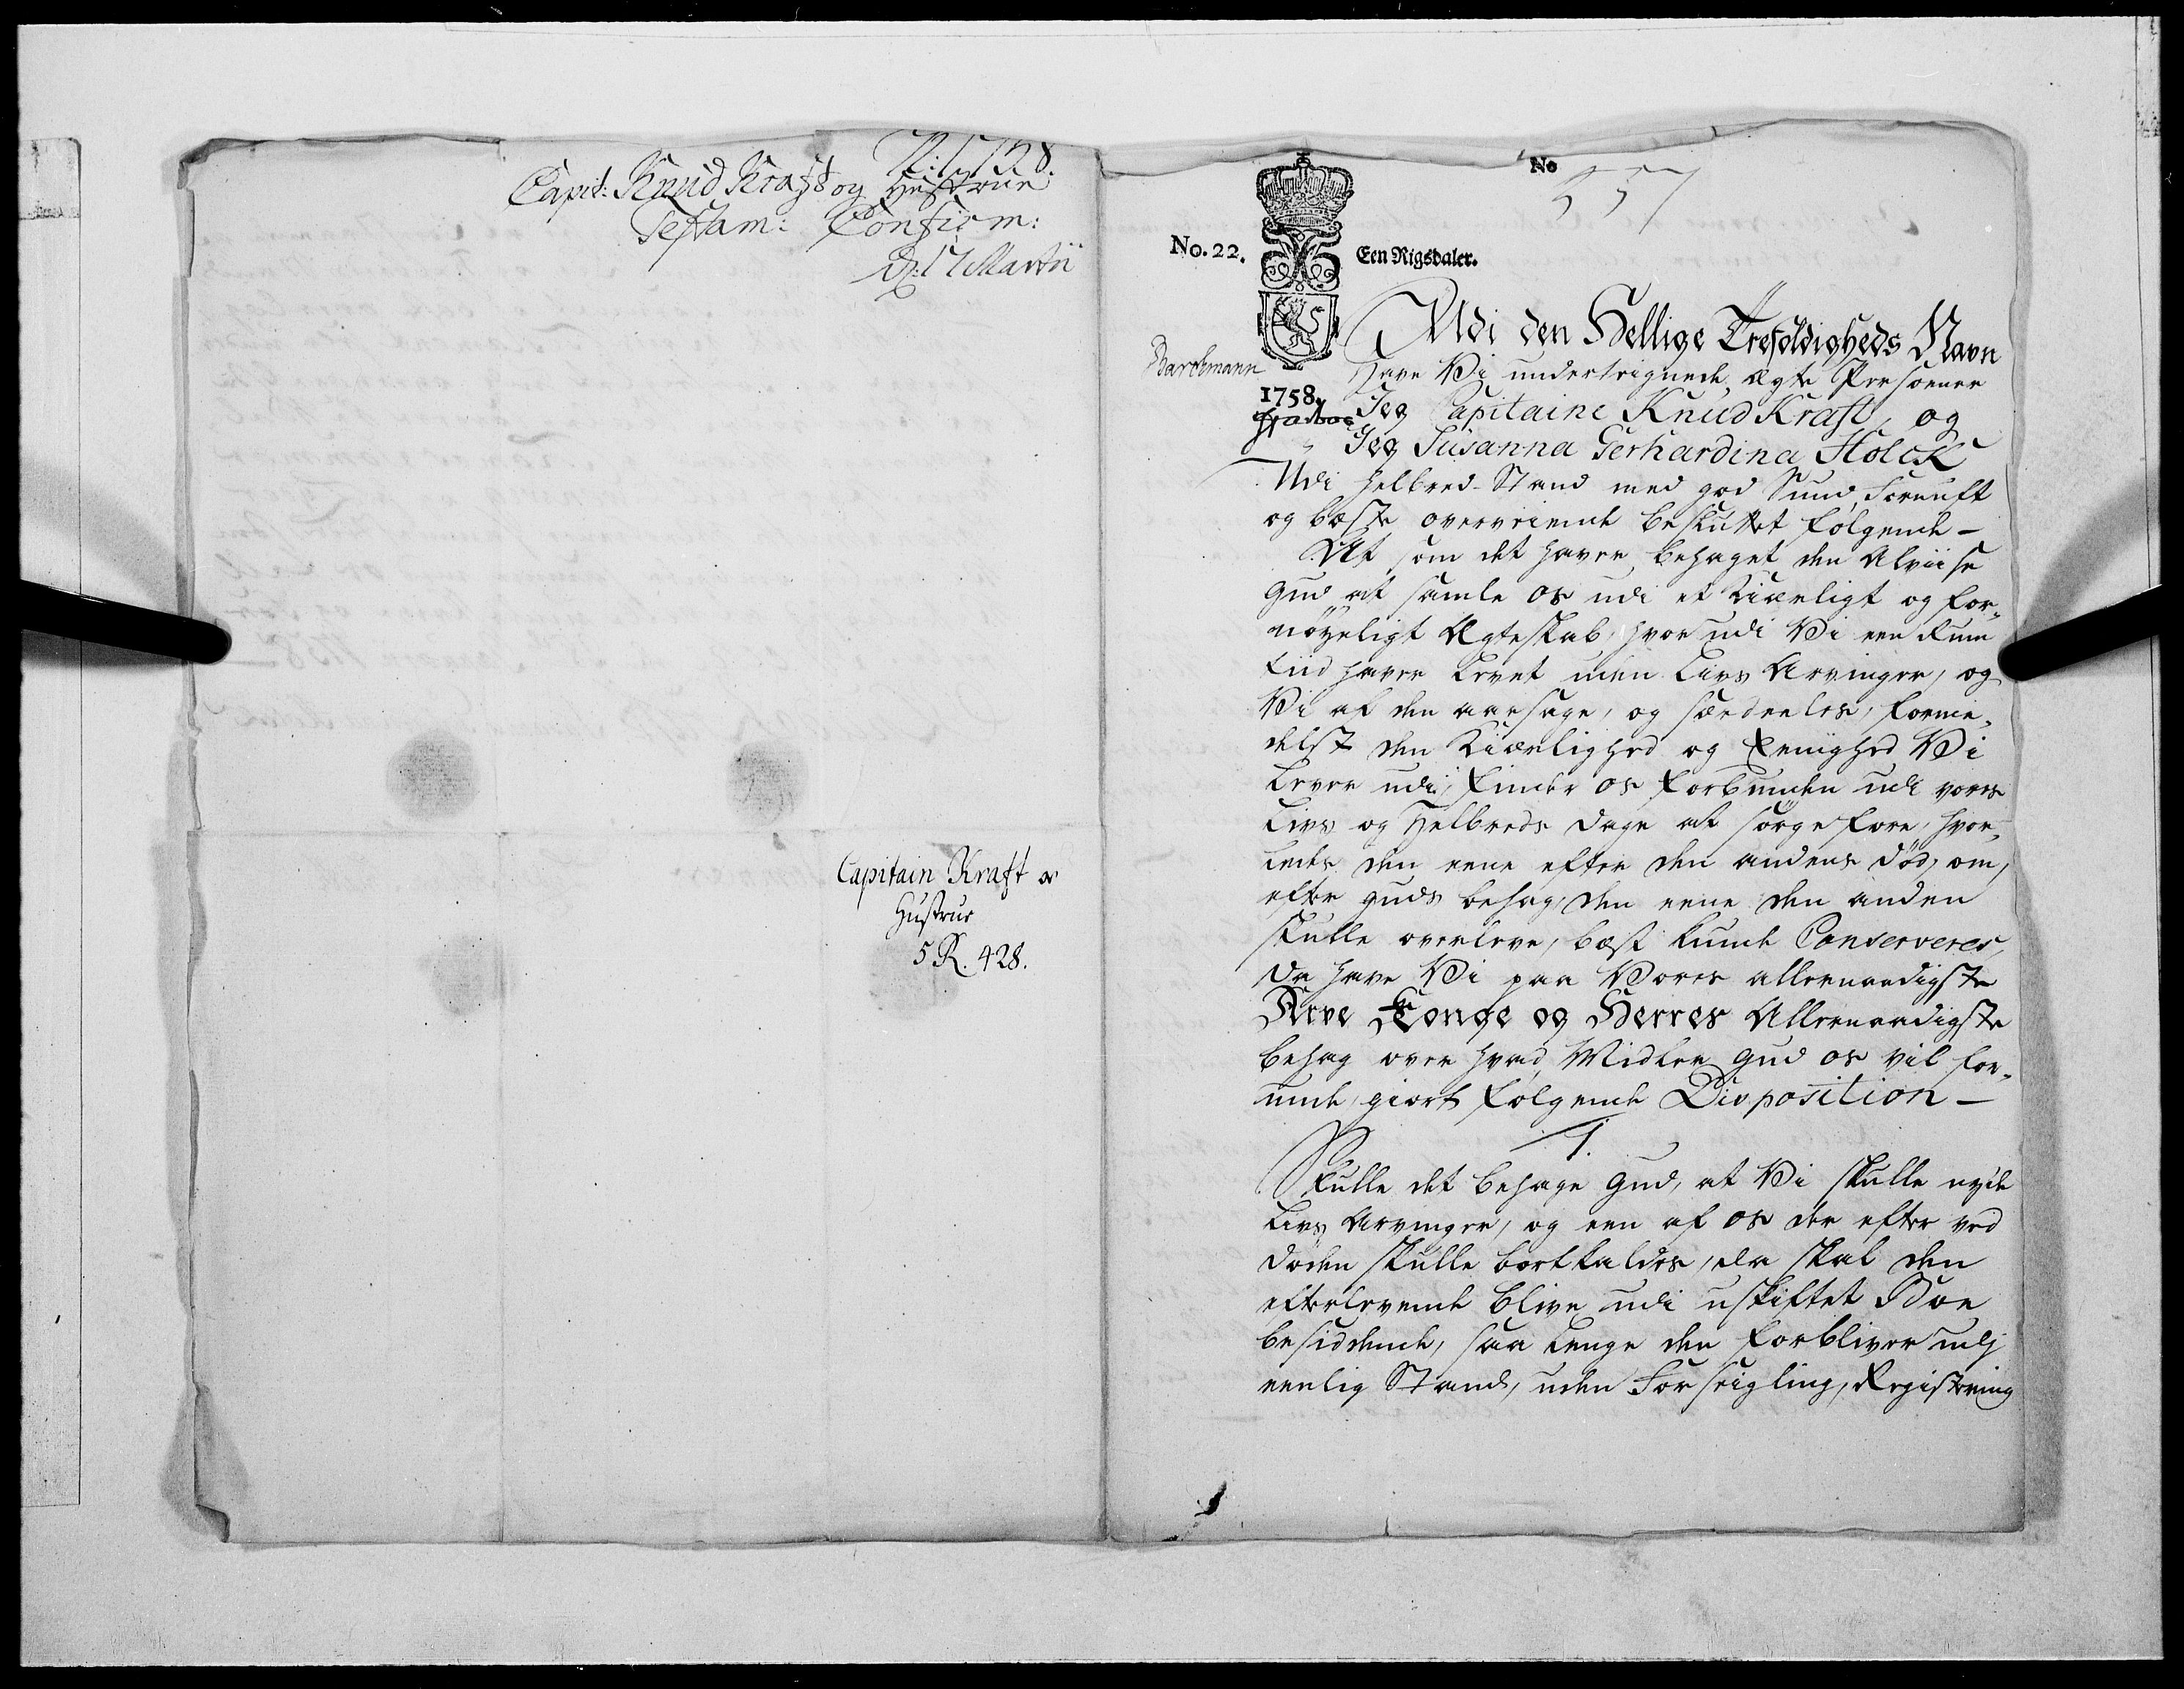 Capit: Knud Kraft og Hustrue
Testam: Confirm:
D: 17 Martii
Capitain Kraft og
Hustrue
5 R. 428.
No
357
No. 22.
Een Rigsdaler.
Barchmann
1758.
Udi den Hellige Trefoldigheds Navn
Have Vi undertegnede ægte Persooner
Jeg Capitaine Knud Kraft, og
Jeg Susanna Gerhardina Holck
Udi helbred-Stand med god Sund Fornuft
og bæste overveiende besluttet følgende –
At som det haver behaget den Alviise
Gud at samle os udi et Kierligt og for-
nøyeligt Ægteskab, hvorudi Vi een Rum
tiid haver levet uden Livs Arvinger, og
Vi af den aarsage, og særdeeles, formi-
delst den Kierlighed og Eenighed Vi
lever udi, finder os forbunden udi vores
Livs og Helbreds dage at sørge fore, hvor-
ledes den eene efter den andens død, om,
efter Guds behag, den eene den anden
skulle overleve, best kunde Conserveres,
da have Vi paa Vores allernaadigste
Arve Konge og Herres Allernaadigste
behag over hvad Midler Gud os vil for-
unde, giort følgende Disposition –
1.
Skulle det behage Gud, at Vi skulle nyde
Livs Arvinger, og een af os der efter ved
døden skulle bortkaldes, da skal den
efterlevende blive udi uskiftet Boe
besiddende, saa lenge den forbliver udj
eenlig Stand, uden Forseigling, Registering